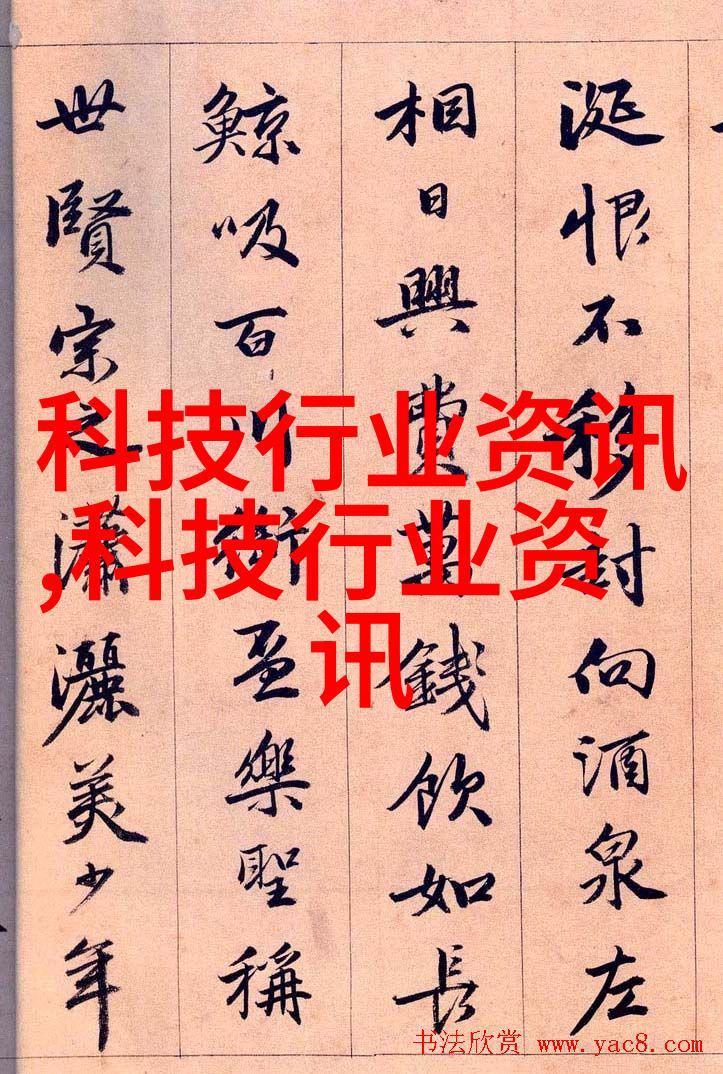 涎恨不移封向酒泉左
相日興費萬錢飲如長
鯨吸百川銜盃樂聖稱
世賢宗之瀟灑美少年
科技行业资讯
,科技行业资
讯
书法欣赏 www.yac8.com